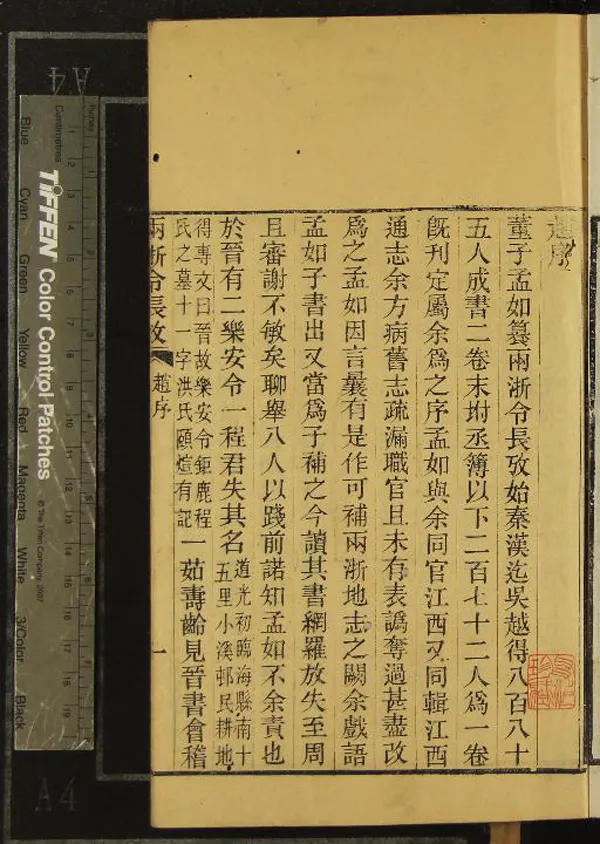 趙序
董子孟如篹兩浙令長攷始秦漢迄吳越得八百八十
五人成書二卷末坿丞簿以下二百七十二人爲一卷
旣刊定屬余爲之序孟如與余同官江西又同輯江西
通志余方病舊志疏漏職官且未有表譌奪過甚盡改
爲之孟如因言曩有是作可補兩浙地志之闕余戲語
孟如子書出又當爲子補之今讀其書網羅放失至周
且審謝不敏矣聊舉八人以踐前諾知孟如不余責也
於晉有二樂安令一程君失其名道光初臨海縣南十五里小溪邨民耕地
得專文曰晉故樂安令鉅鹿程氏之墓十一字洪氏頤煊有記一茹壽齡見晉書會稽
兩浙令長攷
趙序
一
TIFFEN Color Control Patches
© The Tiffen Company, 2007
Inches
Centimetres
Blue
Cyan
Green
Yellow
Red
Magenta
White
3/Color
Black
A4
A4